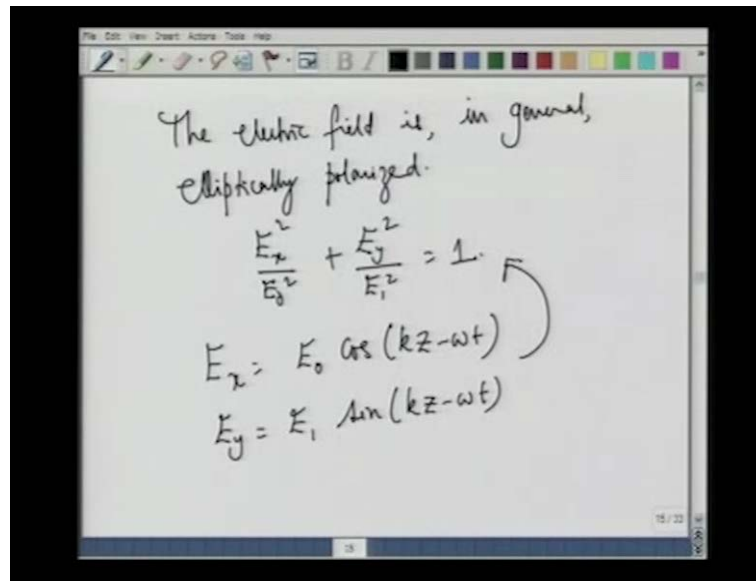 File Edit View Insert Actions Tools Help
B I
The electric field is, in general,
elliptically polarized.
E_x^2 / E_0^2 + E_y^2 / E_1^2 = 1.
E_x = E_0 cos (kz-ωt)
E_y = E_1 sin (kz-ωt)
15/33
15